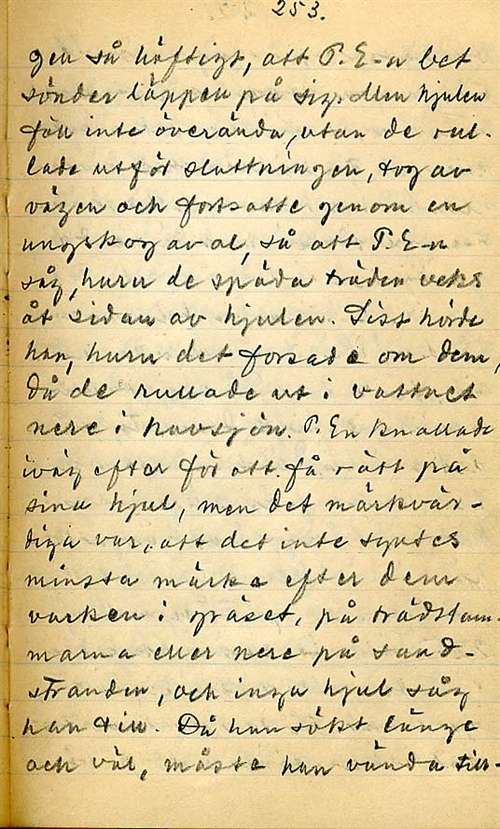 253.
gen så häftigt, att P. E-n bet
sönder läppen på sig. Men hjulen
föll inte överända, utan de rul-
lade utför sluttningen, tog av
vägen och fortsatte genom en
ungskog av al, så att P. E-n
såg, huru de späda träden veks
åt sidan av hjulen. Sist hörde
han, huru det forsade om dem,
då de rullade ut i vattnet
nere i havsjön. P. En knallade
iväg efter för att få rätt på
sina hjul, men det märkvär-
diga var, att det inte syntes
minsta märke efter dem
varken i gräset, på trädstam-
marna eller nere på sand-
stranden, och inga hjul såg
han till. Då han sökt länge
och väl, måste han vända till-